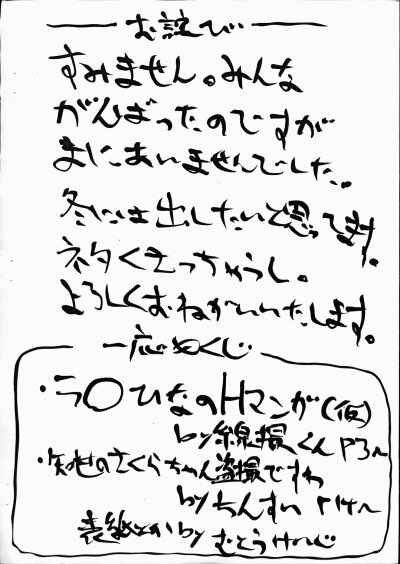 お詫び
すみません。みんな
がんばったのですが
まにあいませんでした。
冬には出したいと思ってます。
ネタくさっちゃうし。
よろしくおねがいいたします。
一応もくじ
・ラ〇ひなのHマンガ(仮)
by 線撮くん P3〜
のさくらちゃん盗撮ですわ
by ちんすい P14〜
表紙とか by むとうけいじ